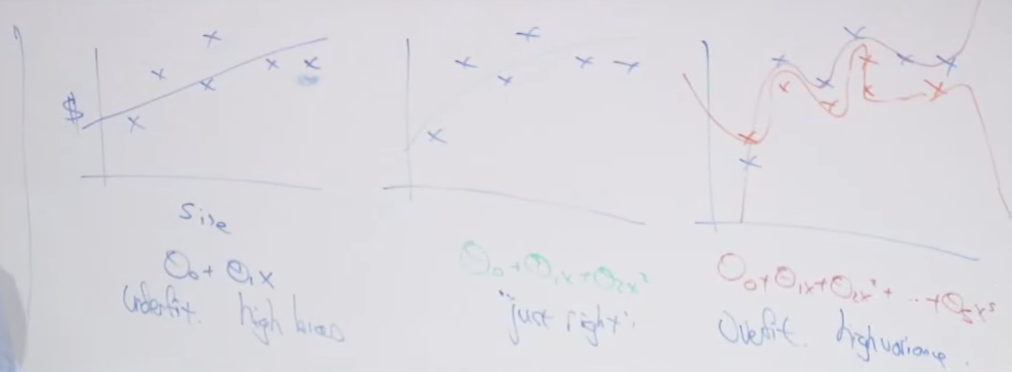 $
Size
θ₀ + θ₁x
Underfit. high bias
θ₀ + θ₁x + θ₂x²
"just right".
θ₀ + θ₁x + θ₂x² + ... + θ₅x⁵
Overfit. high variance.